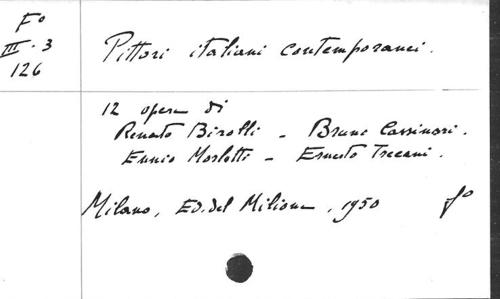 Fº
III. 3
126
Pittori italiani contemporanei.
12 opere di
Renato Birolli - Bruno Cassinari.
Ennio Morlotti - Ernesto Treccani.
Milano, Ed. del Milione, 1950 fº